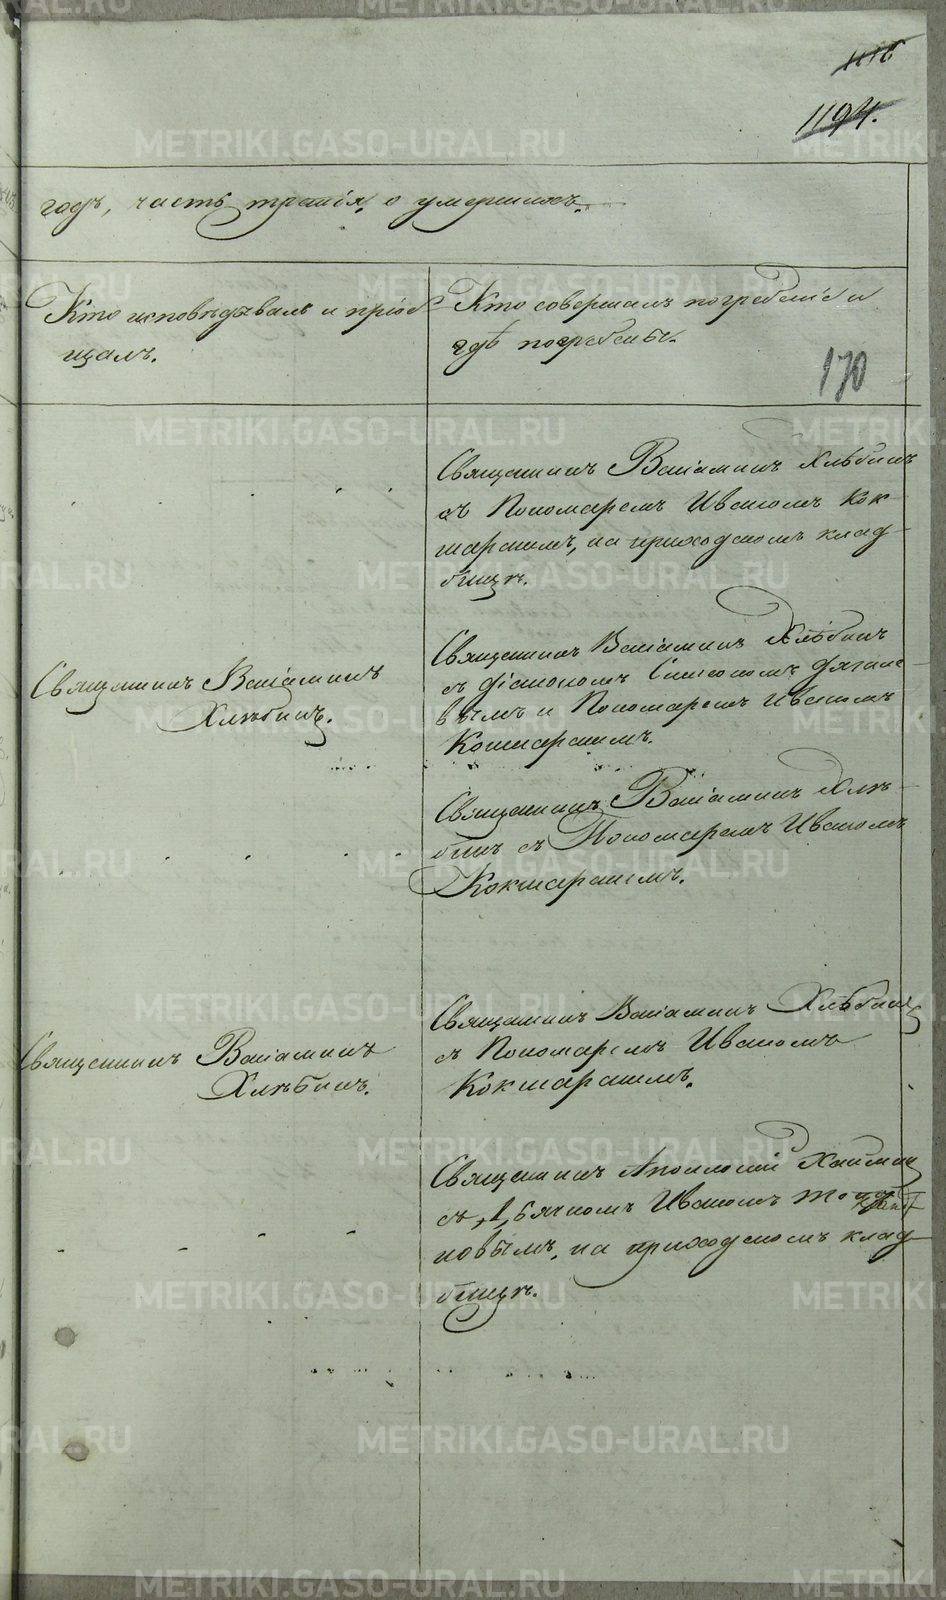 1194.
годъ, часть третія, о умершихъ.
Кто исповѣдывалъ и пріоб-
щалъ.
Кто совершалъ погребеніе и
гдѣ погребены.
170
Священникъ Веніаминъ Хлѣбинъ
съ Пономаремъ Иваномъ Кок-
шарскимъ, на приходскомъ клад-
бищѣ.
Священникъ Веніаминъ
Хлѣбинъ.
Священникъ Веніаминъ Хлѣбинъ
съ Діакономъ Симеономъ
вымъ и Пономаремъ Иваномъ
Кокшарскимъ.
Священникъ Веніаминъ Хлѣ-
бинъ съ Пономаремъ Иваномъ
Кокшарскимъ.
Священникъ Веніаминъ
Хлѣбинъ.
Священникъ Веніаминъ Хлѣбинъ
съ Пономаремъ Иваномъ
Кокшарскимъ.
Священникъ Аполлоній
съ Дьячкомъ Иваномъ
новымъ, на приходскомъ клад-
бищѣ.
METRIKI.GASO-URAL.RU